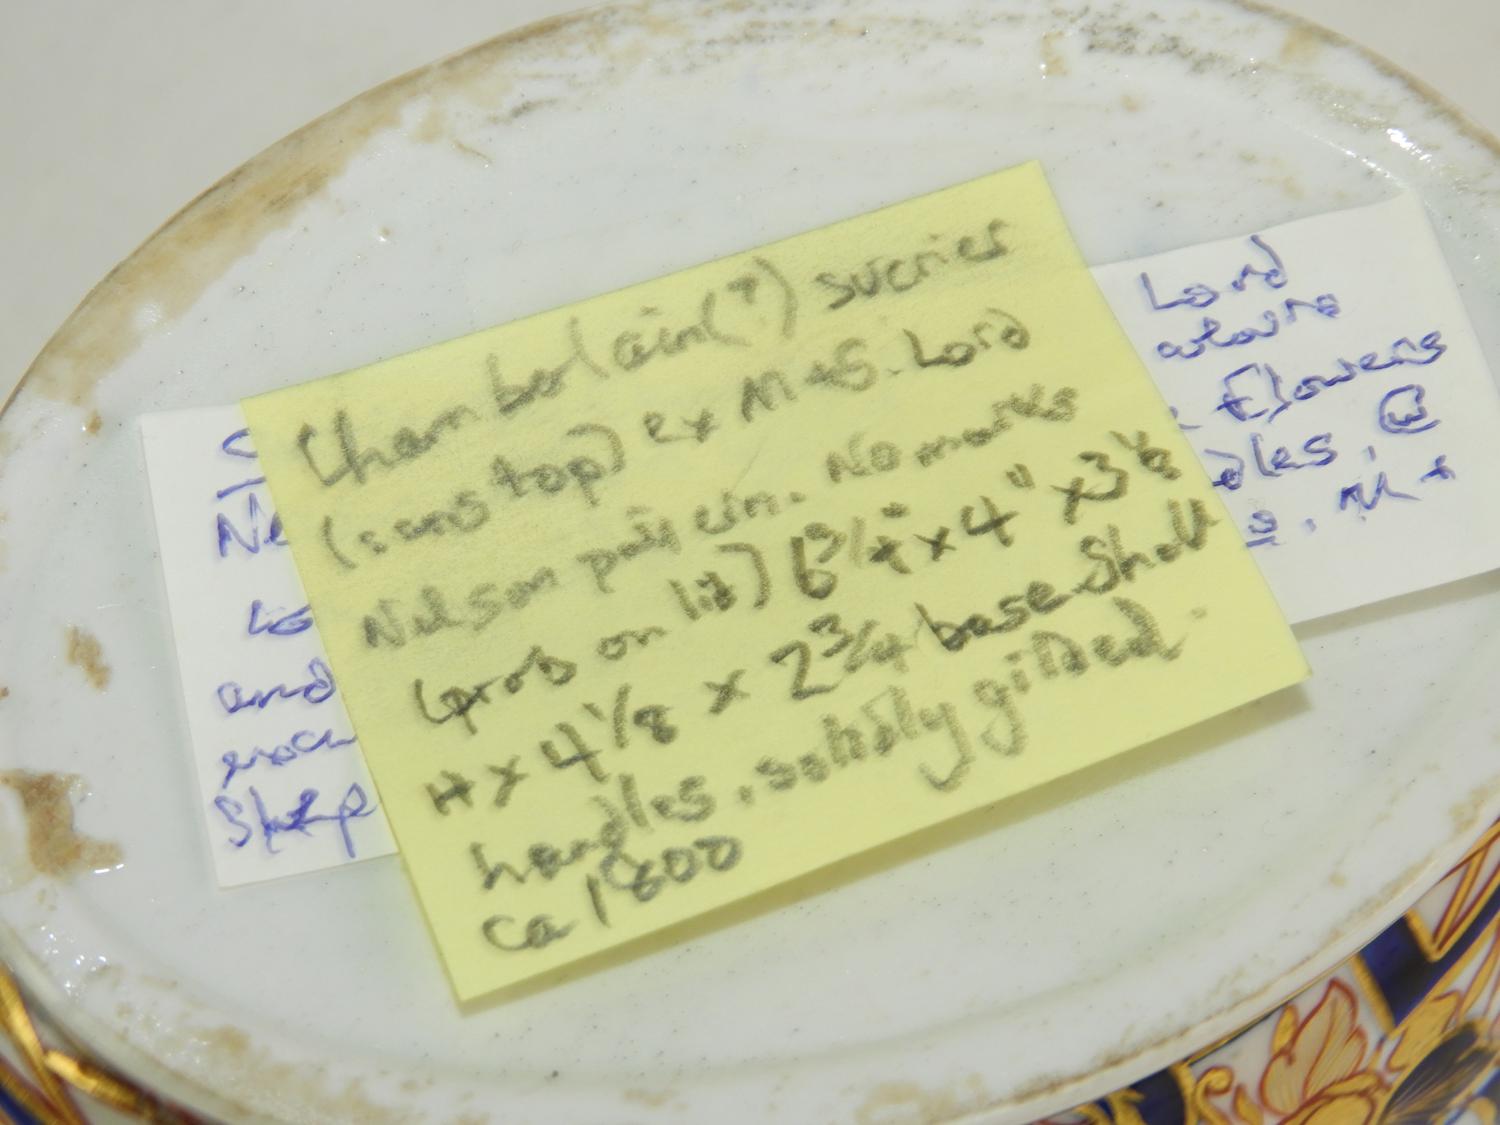 Chamberlain(?) sucrier
(sans top) ex M+S. Lord
Nelson pattern. No marks
(prob on lid) 6 3/4" x 4" x 3 1/8
H x 4 1/8 x 2 3/4 base. Shell
handles, solidly gilded.
ca 1800
Lord
Ne
and
Shap
Flowers